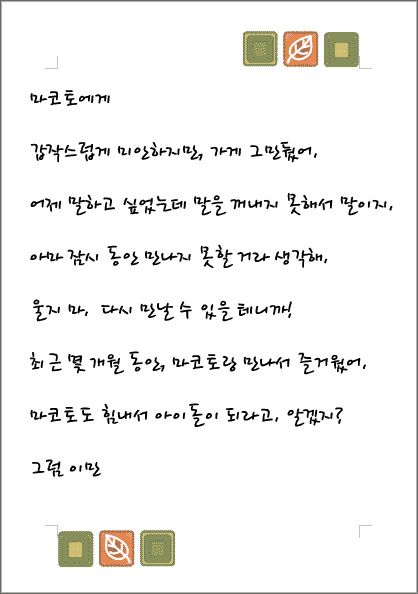 마코토에게
갑작스럽게 미안하지만, 가게 그만뒀어.
어제 말하고 싶었는데 말을 꺼내지 못해서 말이지.
아마 잠시 동안 만나지 못할 거라 생각해.
울지 마. 다시 만날 수 있을 테니까!
최근 몇 개월 동안, 마코토랑 만나서 즐거웠어.
마코토도 힘내서 아이돌이 되라고, 알겠지?
그럼 이만